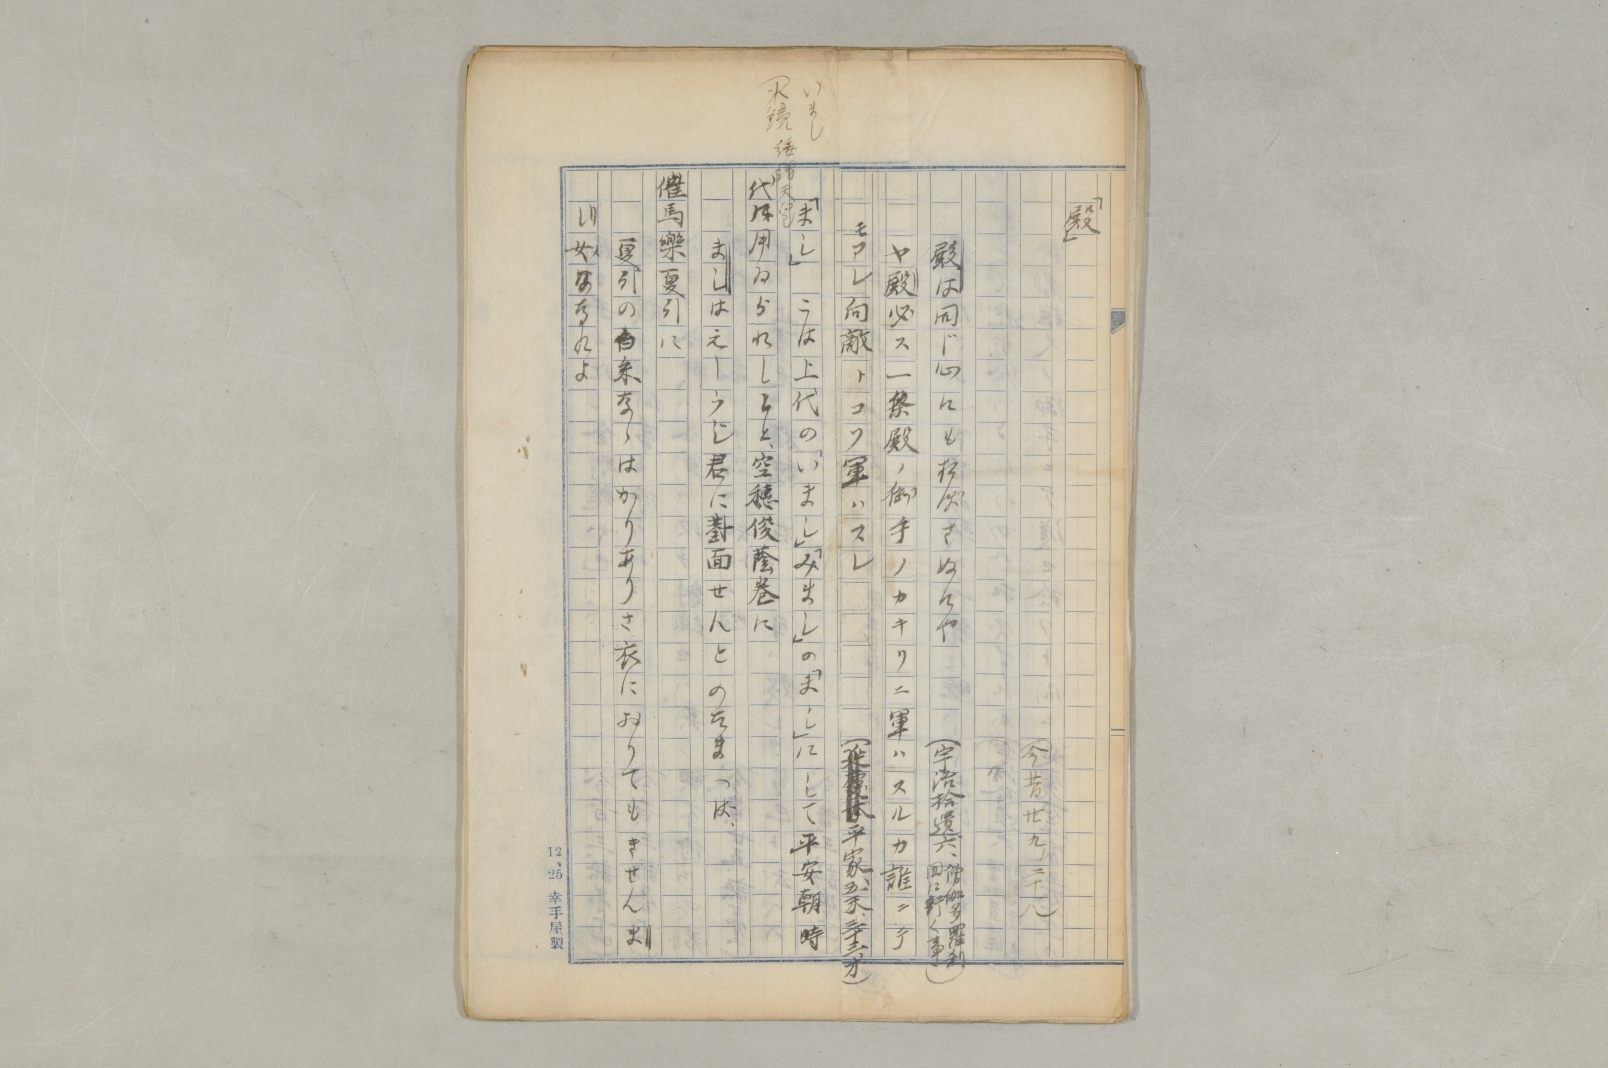 いまし
水鏡
「殿」
(今昔廿九ノ二十八)
殿は同じ心にもおぼさぬにや
(宇治拾遺六、僧伽多羅刹
国に行く事)
ヤ殿必ス一条殿ノ御手ノカキリニ軍ハスルカ誰ニテ
モアレ向敵トコソ軍ハスレ
平家五末、
「まし」 こは上代の「いまし」「みまし」の「まし」にして平安朝時
代に用ゐられしもと、空穂俊蔭巻に
ましはえしうじ君に對面せんとのたまつは、
催馬樂夏引に
夏引の白糸なゝはかりありさ衣におりてもきせんま
し女なれよ
12、25 幸手屋製